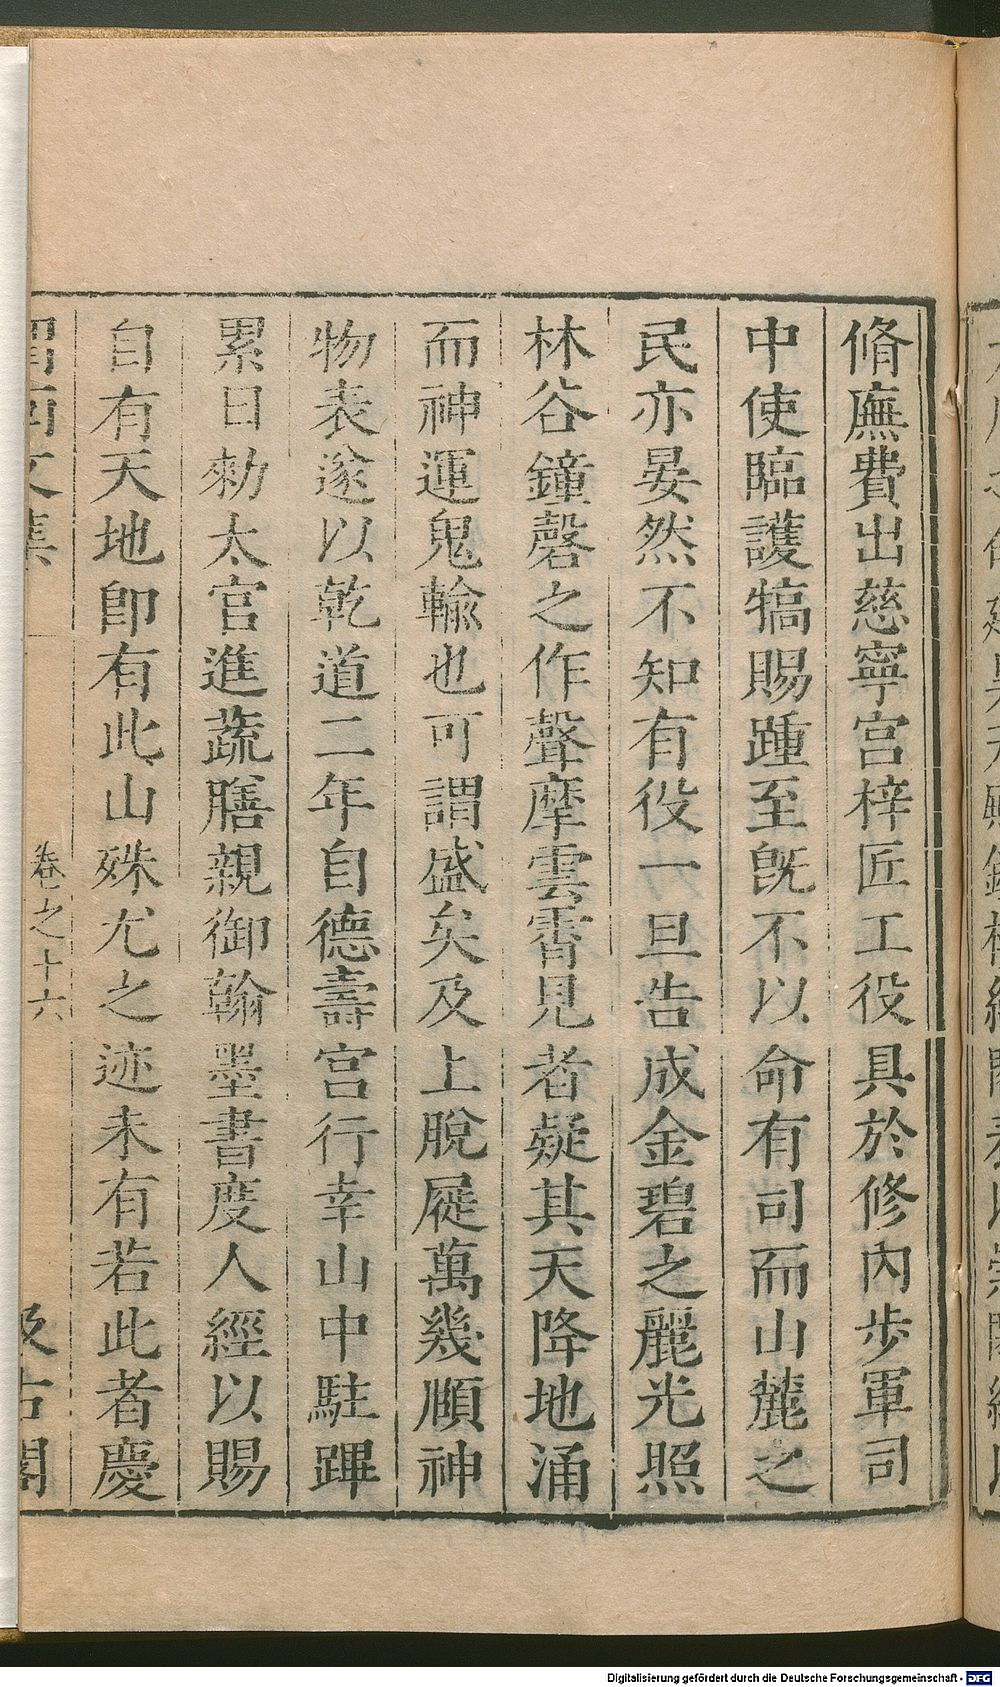 脩廡費出慈寧宮梓匠工役具於修內步軍司
中使臨護犒賜踵至旣不以命有司而山麓之
民亦晏然不知有役一旦告成金碧之麗光照
林谷鐘磬之作聲摩雲霄見者疑其天降地涌
而神運鬼輸也可謂盛矣及上脫屣萬幾頤神
物表遂以乾道二年自德壽宮行幸山中駐蹕
累日勑太官進蔬膳親御翰墨書度人經以賜
自有天地卽有此山殊尤之迹未有若此者慶
渭南文集
卷之十六
汲古閣
Digitalisierung gefördert durch die Deutsche Forschungsgemeinschaft - DFG